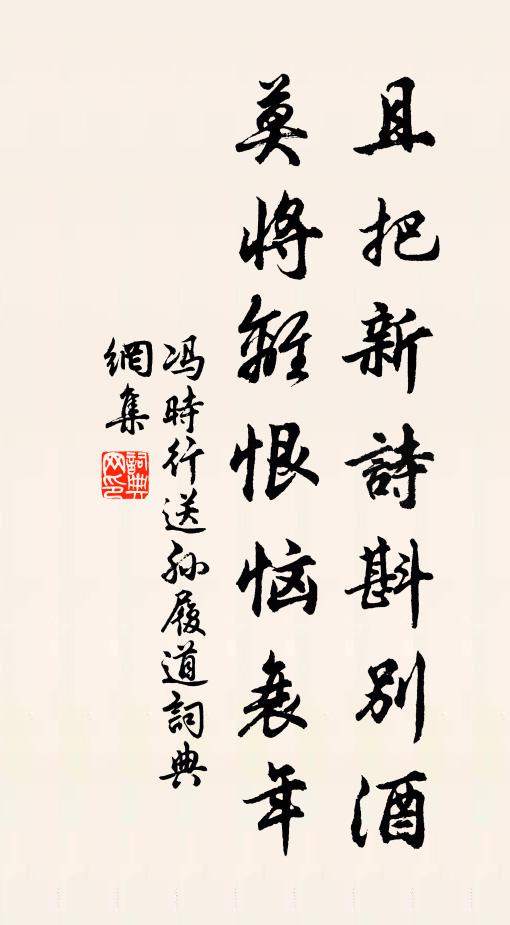 且把新詩斟別酒
莫將離恨恼衰年
冯時行送孙履道詞典
網集
詞典
网印